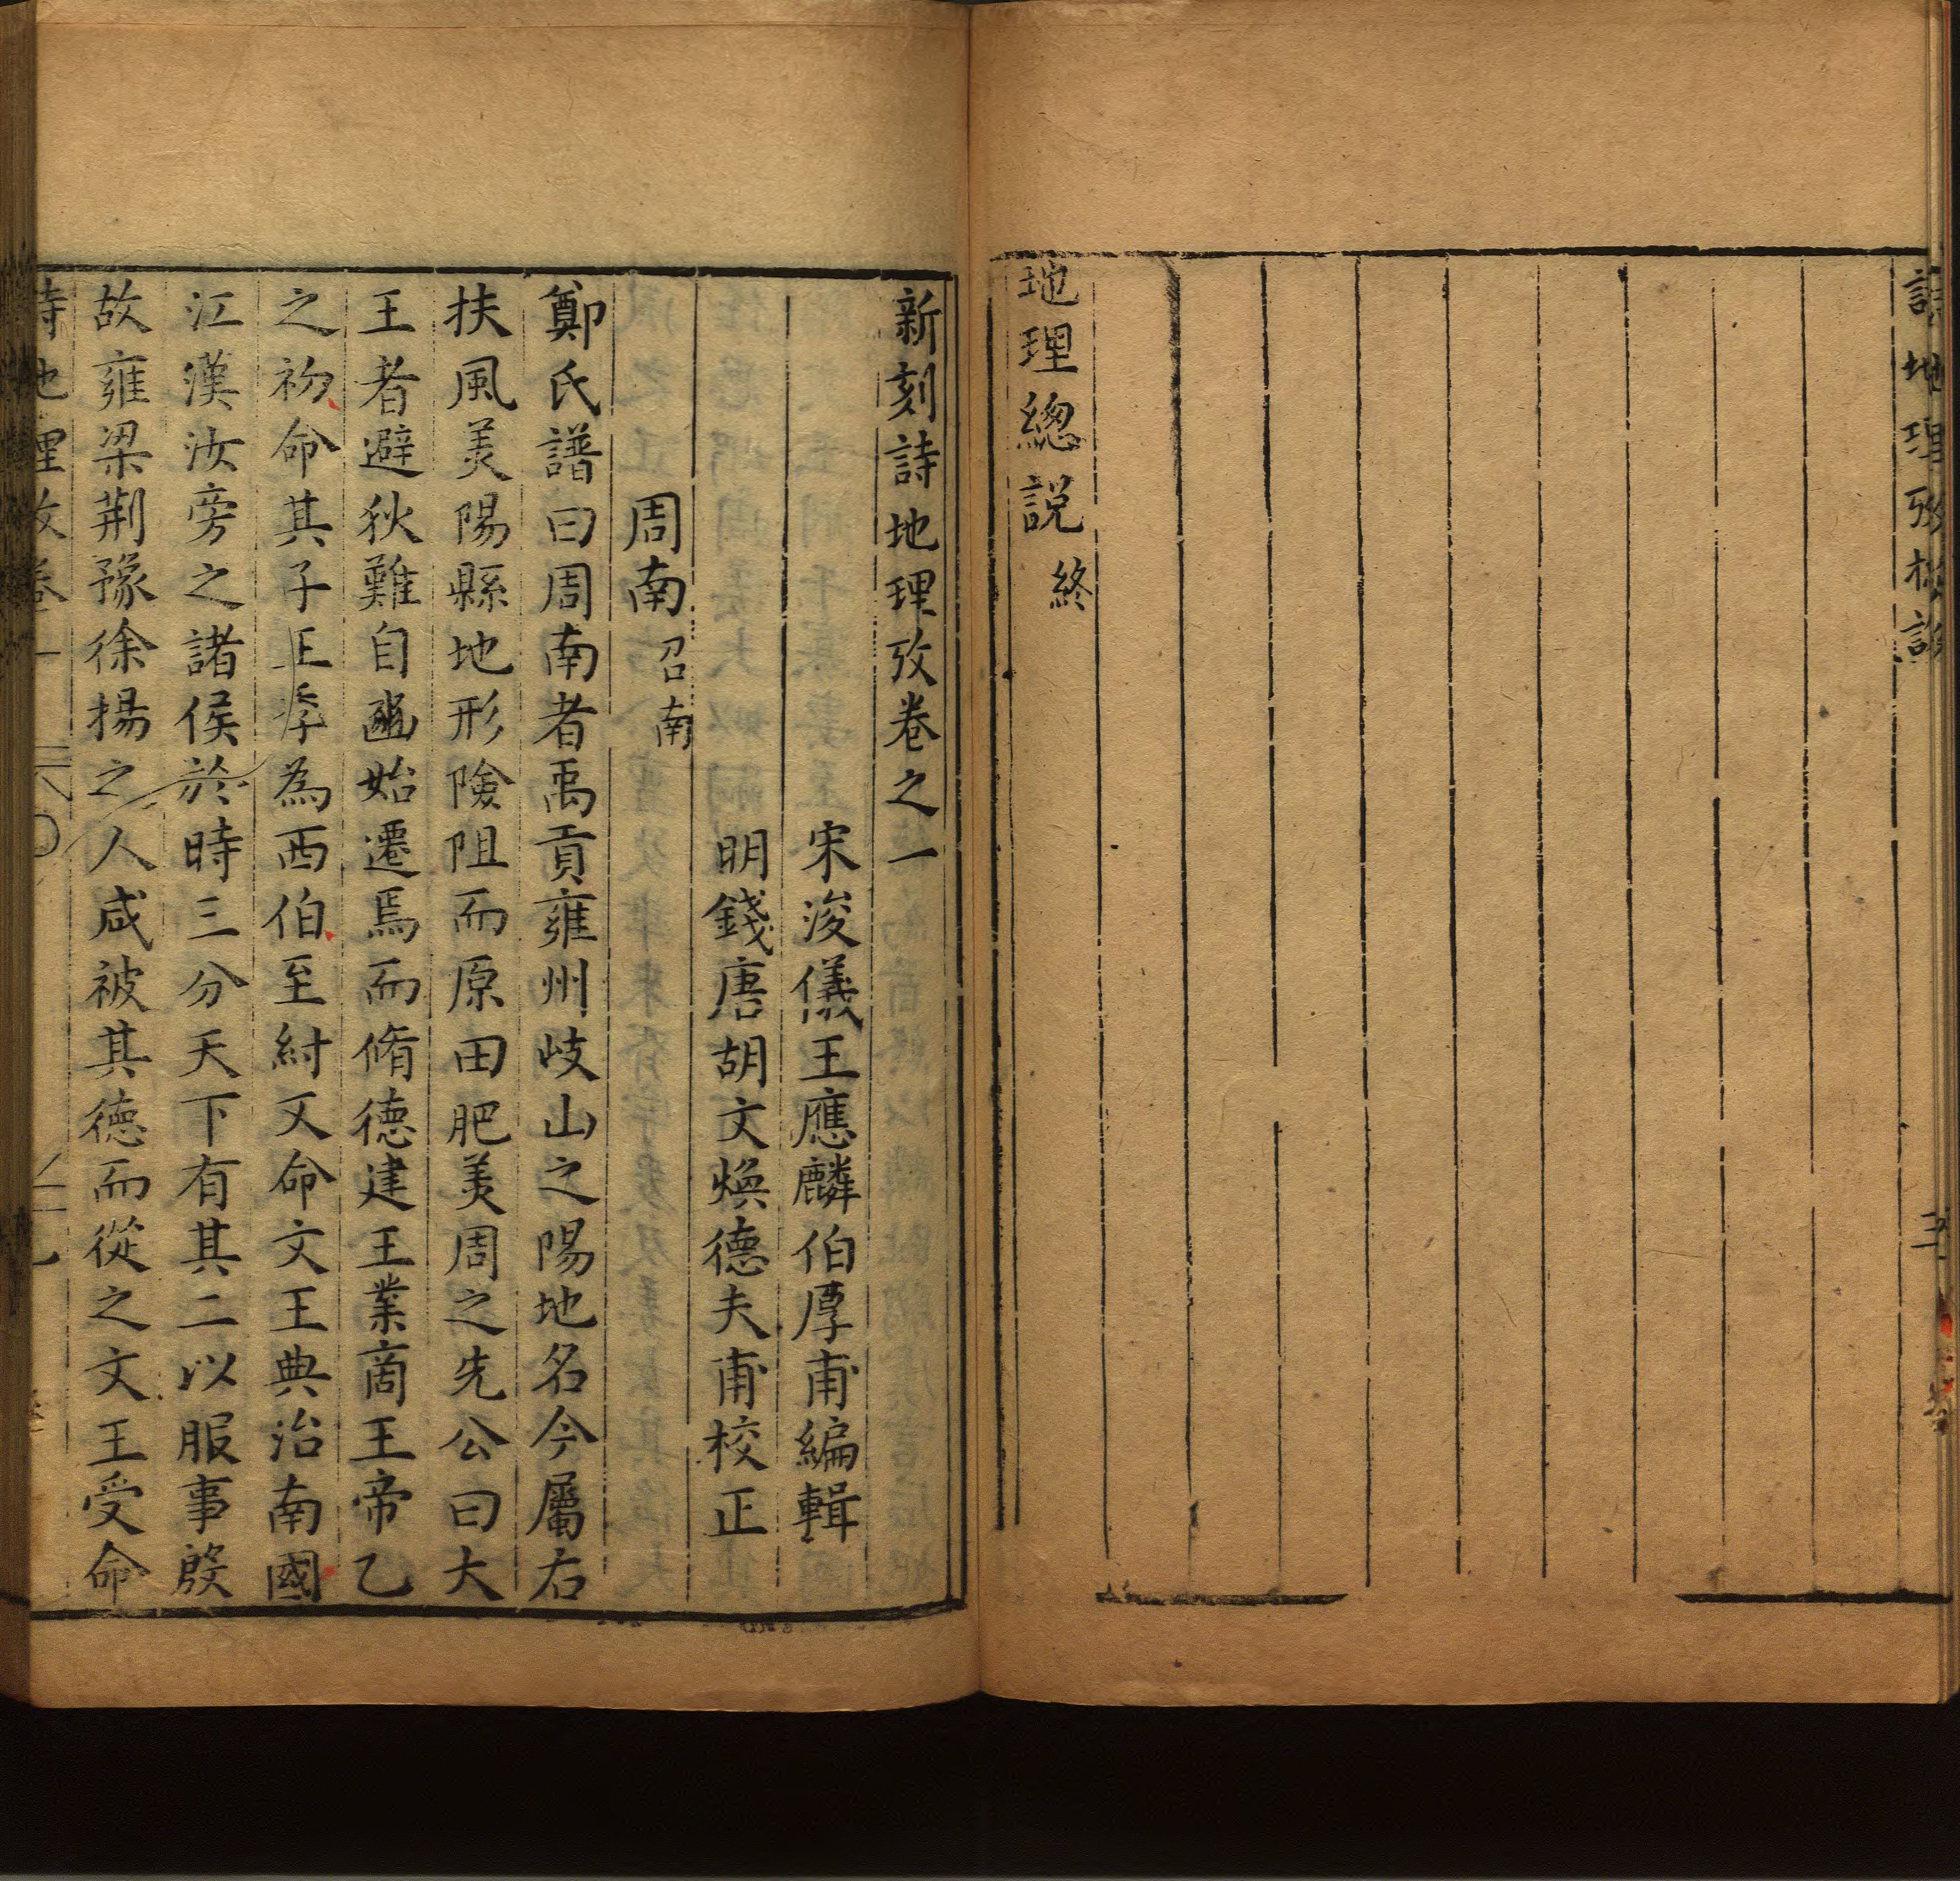 詩地理攷總說
三
地理總說終
新刻詩地理攷卷之一
宋浚儀王應麟伯厚甫編輯
明錢唐胡文煥德夫甫校正
周南召南
鄭氏譜曰周南者禹貢雍州岐山之陽地名今屬右
扶風美陽縣地形險阻而原田肥美周之先公曰大
王者避狄難自豳始遷焉而脩德建王業商王帝乙
之初命其子王季為西伯至紂又命文王典治南國
江漢汝旁之諸侯於時三分天下有其二以服事殷
故雍梁荆豫徐揚之人咸被其德而從之文王受命
詩地理攷卷一